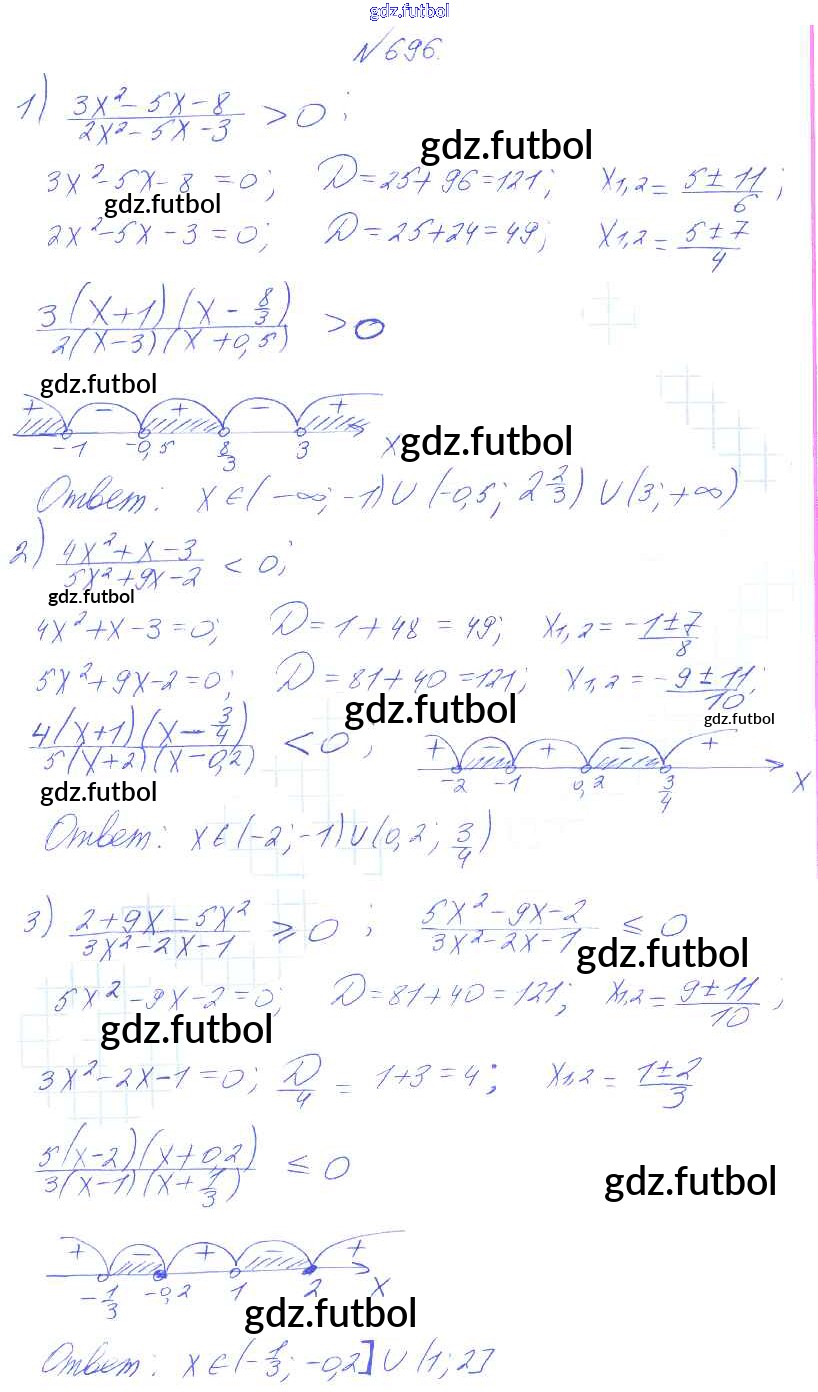 gdz.futbol
№696.
1) (3x² - 5x - 8)/(2x² - 5x - 3) > 0;
gdz.futbol
3x² - 5x - 8 = 0; D = 25 + 96 = 121; x₁,₂ = (5 ± 11)/6;
gdz.futbol
2x² - 5x - 3 = 0; D = 25 + 24 = 49; x₁,₂ = (5 ± 7)/4
3(x+1)(x - 8/3)/2(x-3)(x+0,5) > 0
gdz.futbol
+ - + - +
-1 -0,5 8/3 3 x
gdz.futbol
Ответ: x ∈ (-∞; -1) U (-0,5; 2 2/3) U (3; +∞)
2) (4x² + x - 3)/(5x² + 9x - 2) < 0;
gdz.futbol
4x² + x - 3 = 0; D = 1 + 48 = 49; x₁,₂ = (-1 ± 7)/8
5x² + 9x - 2 = 0; D = 81 + 40 = 121; x₁,₂ = (-9 ± 11)/10;
gdz.futbol
gdz.futbol
4(x+1)(x - 3/4)/5(x+2)(x-0,2) < 0;
+ - + - +
-2 -1 0,2 3/4 x
gdz.futbol
Ответ: x ∈ (-2; -1) U (0,2; 3/4)
3) (2 + 9x - 5x²)/(3x² - 2x - 1) ≥ 0; (5x² - 9x - 2)/(3x² - 2x - 1) ≤ 0
gdz.futbol
5x² - 9x - 2 = 0; D = 81 + 40 = 121; x₁,₂ = (9 ± 11)/10;
gdz.futbol
3x² - 2x - 1 = 0; D/4 = 1 + 3 = 4; x₁,₂ = (1 ± 2)/3
5(x-2)(x+0,2)/3(x-1)(x + 1/3) ≤ 0
gdz.futbol
+ - + - +
-1/3 -0,2 1 2 x
gdz.futbol
Ответ: x ∈ (-1/3; -0,2] U (1; 2]